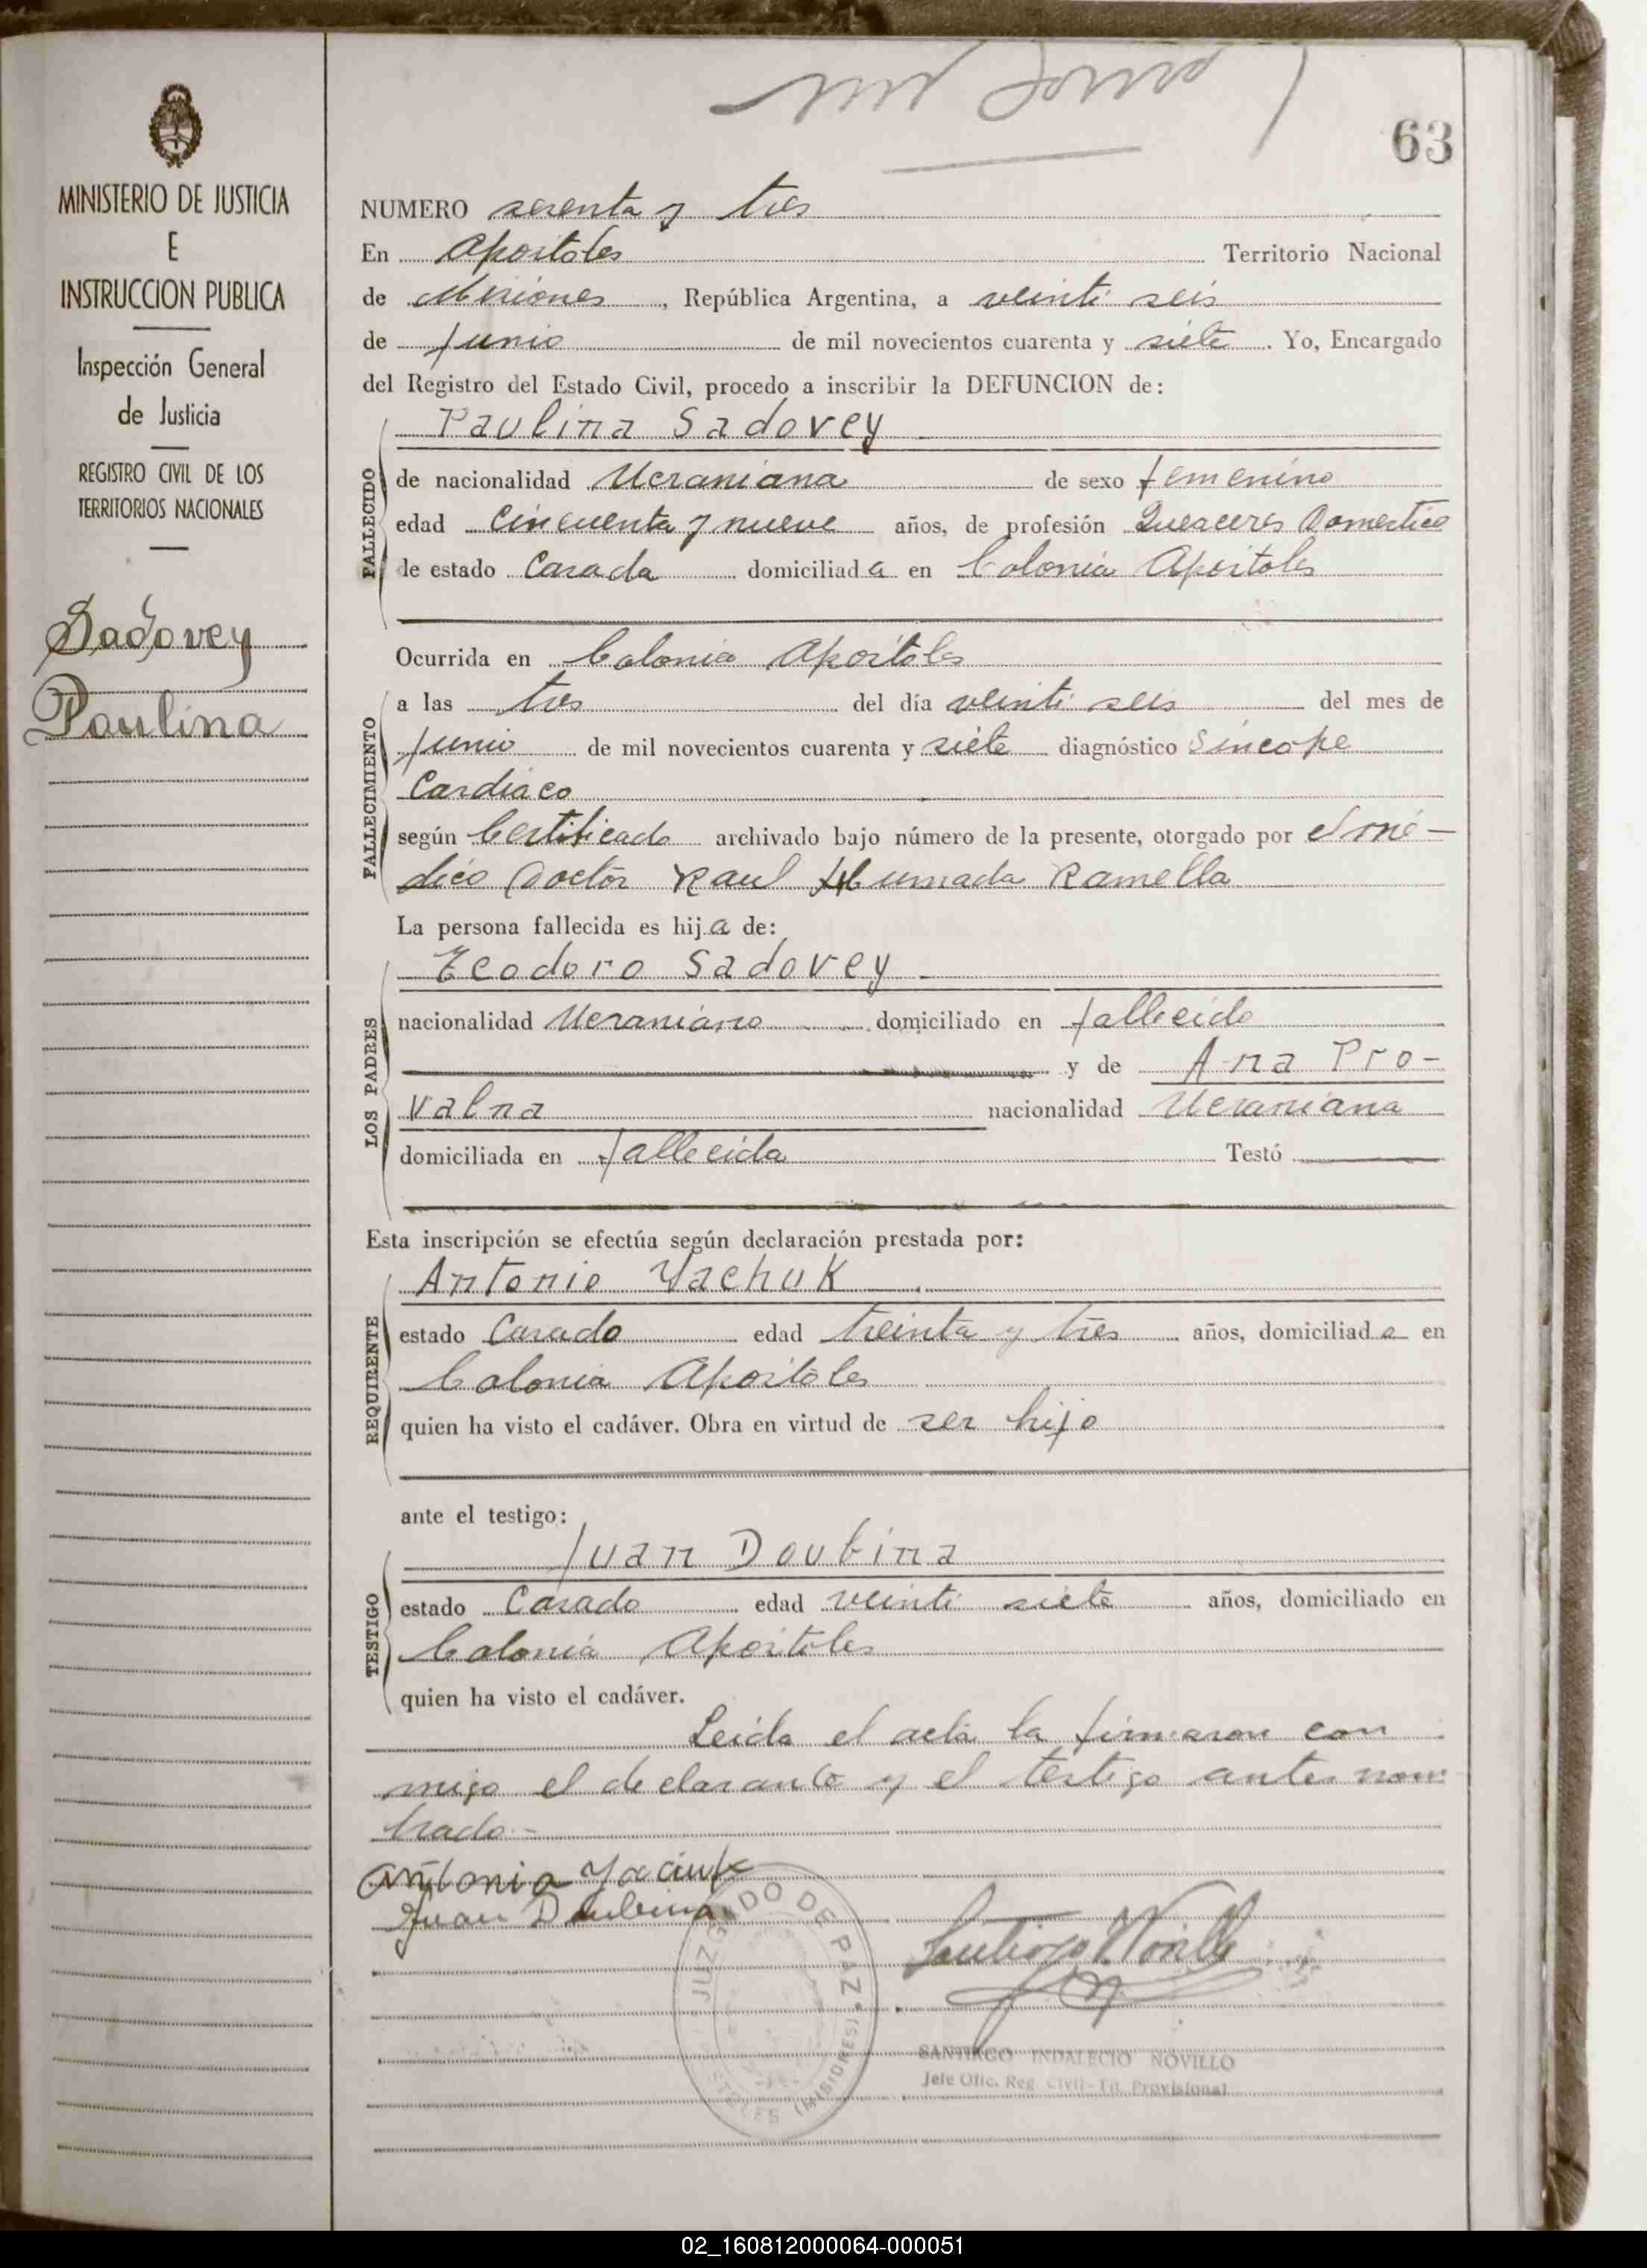 63
MINISTERIO DE JUSTICIA
E
INSTRUCCION PUBLICA
Inspección General
de Justicia
REGISTRO CIVIL DE LOS
TERRITORIOS NACIONALES
Sadovey
Paulina
NUMERO sesenta y tres
En Apóstoles Territorio Nacional
de Misiones, República Argentina, a veinti seis
de Junio de mil novecientos cuarenta y siete. Yo, Encargado
del Registro del Estado Civil, procedo a inscribir la DEFUNCION de:
Paulina Sadovey
FALLECIDO
de nacionalidad Ucraniana de sexo femenino
edad Cincuenta y nueve años, de profesión Queaceres Domestico
de estado Casada domiciliada en Colonia Apóstoles
Ocurrida en Colonia Apóstoles
FALLECIMIENTO
a las tres del día veinti seis del mes de
Junio de mil novecientos cuarenta y siete diagnóstico Síncope
Cardíaco
según Certificado archivado bajo número de la presente, otorgado por el mé-
dico Doctor Raul Humada Ramella
La persona fallecida es hija de:
LOS PADRES
Teodoro Sadovey
nacionalidad Ucraniano domiciliado en fallecido
y de Ana Pro-
valna nacionalidad Ucraniana
domiciliada en fallecida Testó
Esta inscripción se efectúa según declaración prestada por:
REQUIRENTE
Antonio Yachuk
estado Casado edad treinta y tres años, domiciliado en
Colonia Apóstoles
quien ha visto el cadáver. Obra en virtud de ser hijo
ante el testigo:
TESTIGO
Juan Doubina
estado Casado edad veinti siete años, domiciliado en
Colonia Apóstoles
quien ha visto el cadáver.
Leída el acta la firmaron con
migo el declarante y el testigo antes nom
brado.-
Antonio
Juan Doubina
JUZGADO DE PAZ
(MISIONES)
Santiago Novillo
SANTIAGO INDALECIO NOVILLO
Jefe Ofic. Reg. Civil - Tit. Provisional
02_160812000064-000051